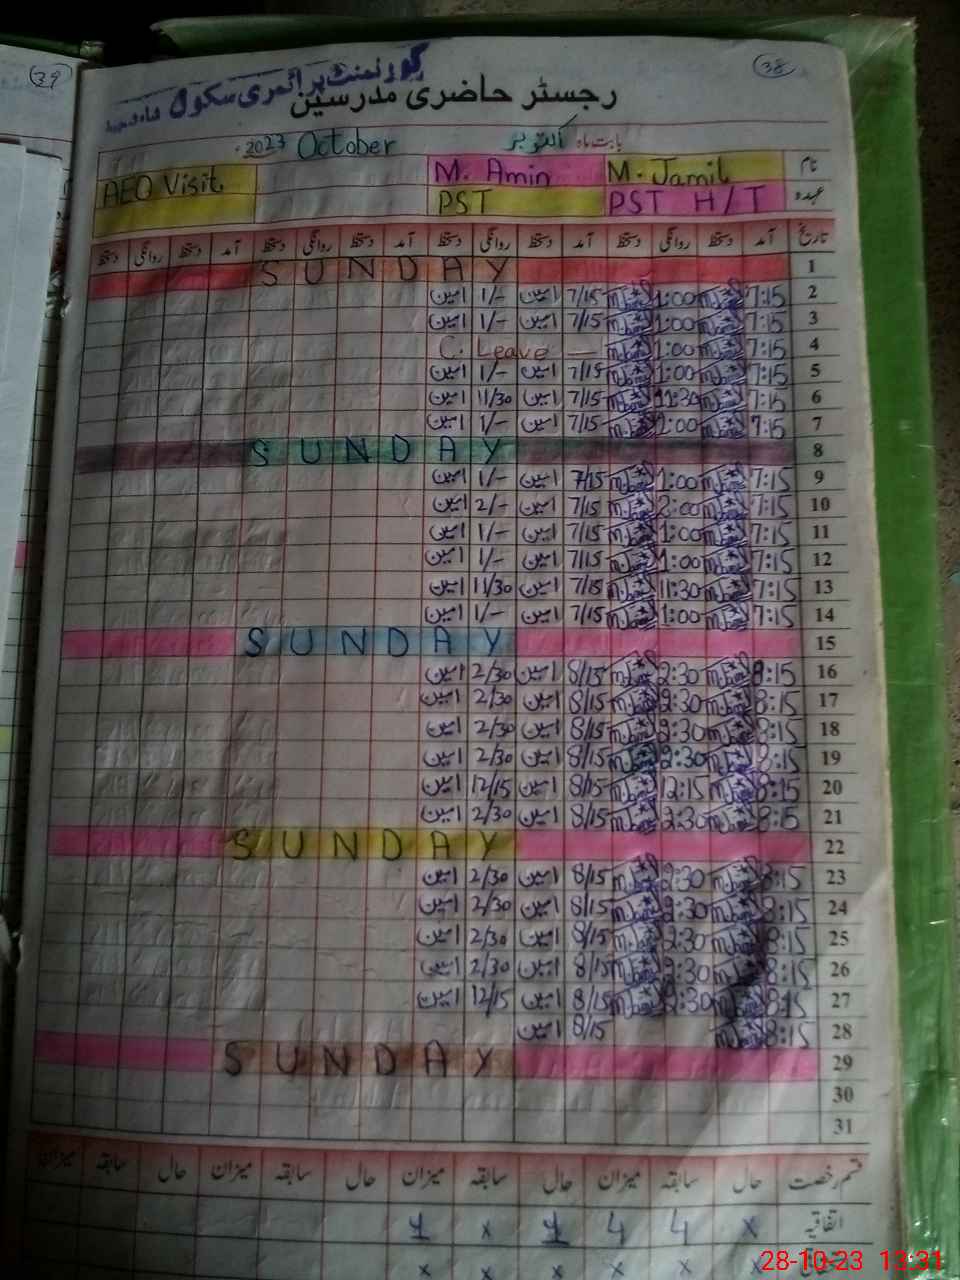 39
38
گورنمنٹ پرائمری سکول
رجسٹر حاضری مدرسین
بابت ماہ اکتوبر October 2023
نام M. Jamil M. Amin AEO Visit
عہدہ PST H/T PST
تاریخ آمد دستخط روانگی دستخط آمد دستخط روانگی دستخط آمد دستخط روانگی دستخط آمد دستخط روانگی دستخط
1 SUNDAY
2 7:15 1:00 7/15 امین 1/- امین
3 7:15 1:00 7/15 امین 1/- امین
4 7:15 1:00 C. Leave —
5 7:15 1:00 7/15 امین 1/- امین
6 7:15 11:30 7/15 امین 11/30 امین
7 7:15 7/15 امین 1/- امین
8 SUNDAY
9 7:15 1:00 7/15 امین 1/- امین
10 7:15 2:00 7/15 امین 2/- امین
11 7:15 1:00 7/15 امین 1/- امین
12 7:15 1:00 7/15 امین 1/- امین
13 7:15 11:30 7/15 امین 11/30 امین
14 7:15 1:00 7/15 امین 1/- امین
15 SUNDAY
16 8:15 2:30 8/15 امین 2/30 امین
17 8:15 2:30 8/15 امین 2/30 امین
18 8:15 2:30 8/15 امین 2/30 امین
19 8:15 2:30 8/15 امین 2/30 امین
20 8:15 12:15 8/15 امین 12/15 امین
21 8:15 2:30 8/15 امین 2/30 امین
22 SUNDAY
23 8:15 2:30 8/15 امین 2/30 امین
24 8:15 2:30 8/15 امین 2/30 امین
25 8:15 2:30 8/15 امین 2/30 امین
26 8:15 2:30 8/15 امین 2/30 امین
27 8:15 2:30 8/15 امین 12/15 امین
28 8:15 8/15 امین
29 SUNDAY
30
31
قسم رخصت حال سابقہ میزان حال سابقہ میزان حال سابقہ میزان حال سابقہ میزان
اتفاقیہ x 4 4 1 x 1
x x x x x
28-10-23 13:31